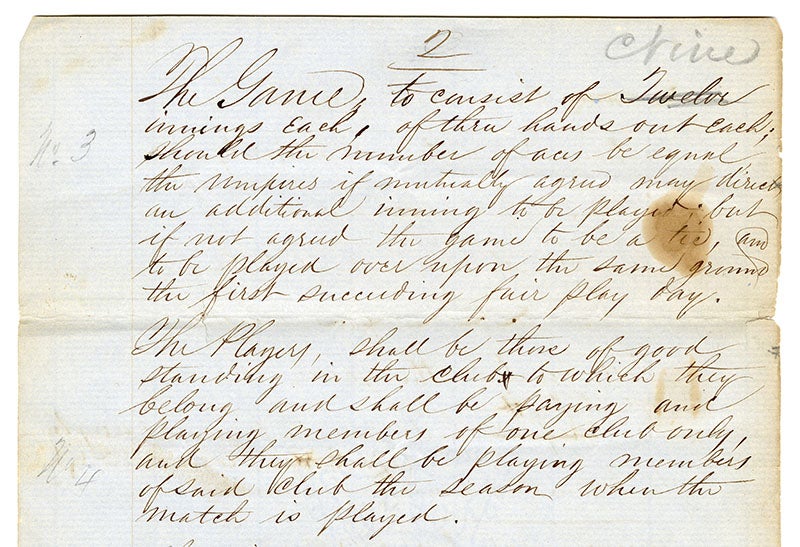 2
Nine
The Game, to consist of Twelve
innings Each, of three hands out Each;
should the number of aces be equal
the umpires if mutually agreed may direct
an additional inning to be played; but
if not agreed the game to be a tie, and
to be played over upon the same ground
the first succeeding fair play day.
No. 3
The Players, shall be those of good
standing in the club to which they
belong and shall be paying and
playing members of one club only,
and they shall be playing members
of said club the season when the
match is played.
No 4